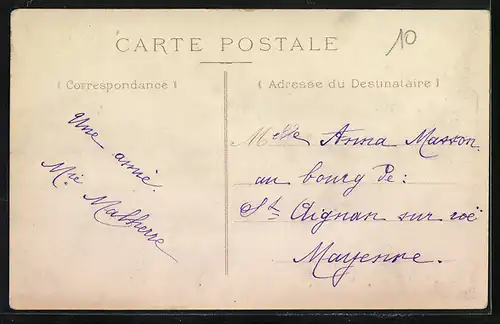 CARTE POSTALE
10
( Correspondance )
( Adresse du Destinataire )
Une amie
Mie Malherre
Melle Anna Masson
au bourg de :
St Aignan sur roë
Mayenne.